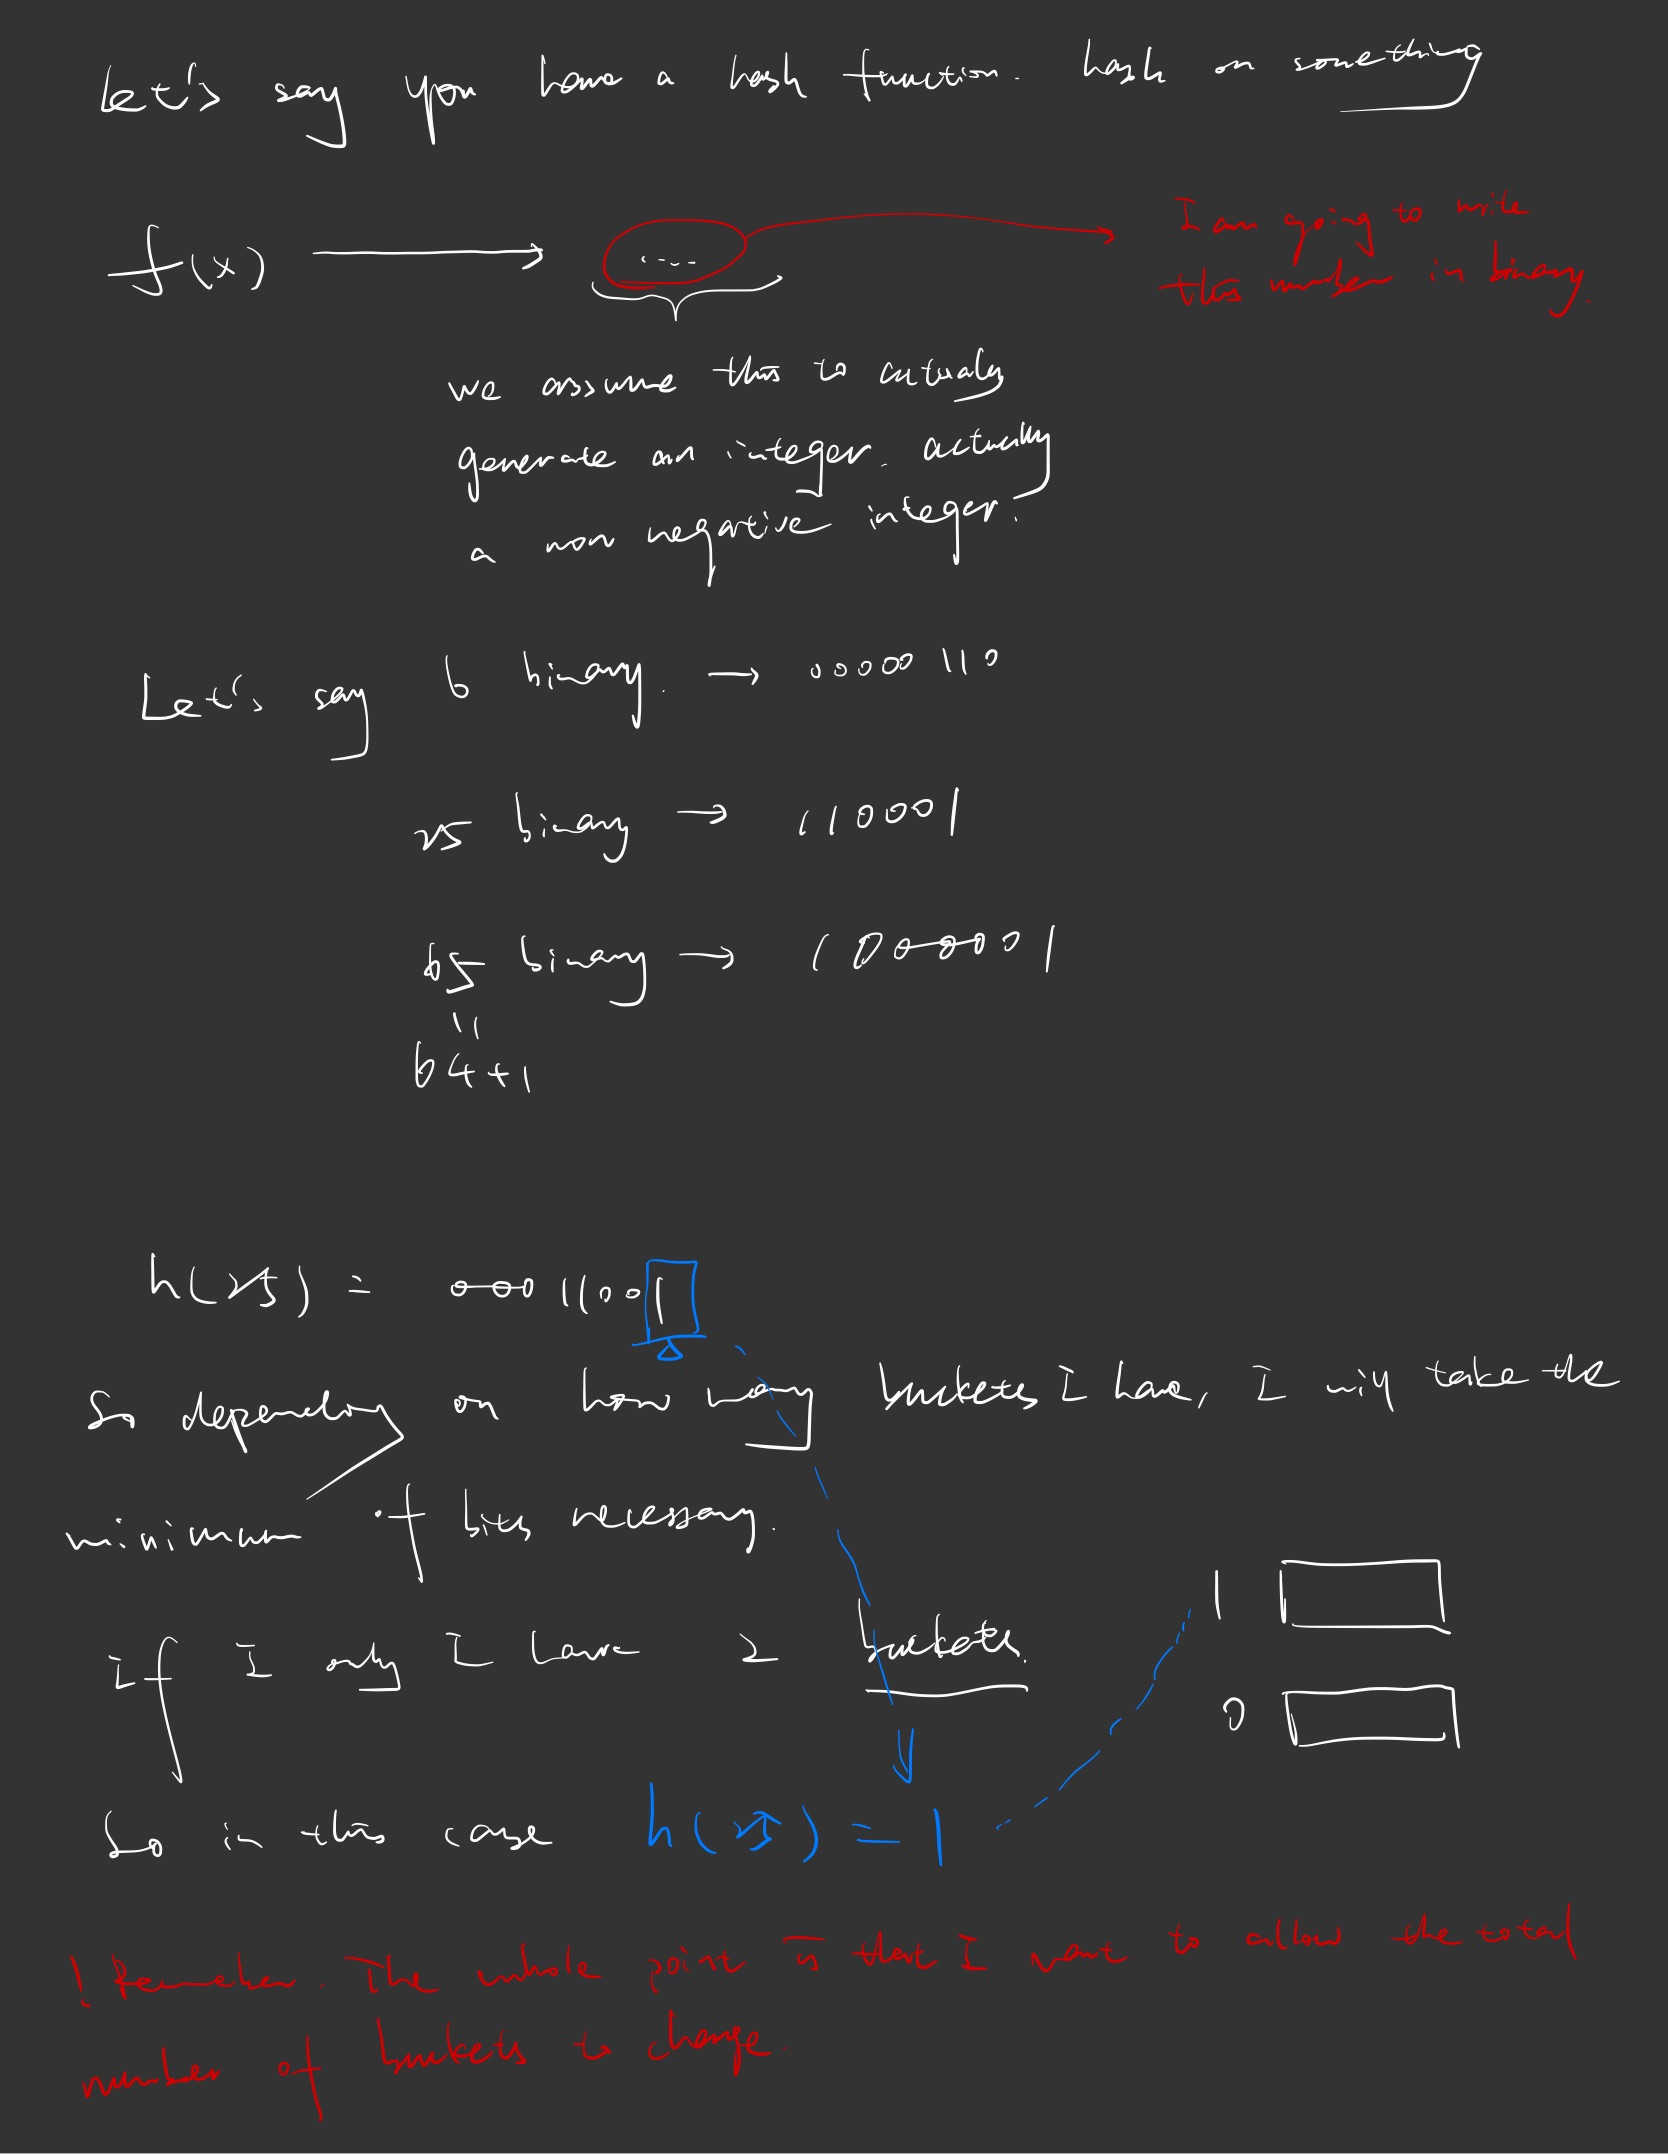 Let's say you have a hash function. hash on something
f(x) → ....
I am going to write
this number in binary.
we assume this to actualy
generate an integer. actually
a non negative integer.
Let's say 6 binary. → 00000110
25 binary → 110001
65 binary → 1000001
"
64+1
h(25) = 00011001
So depending on how many buckets I have, I will take the
minimum of bits necessary.
if I only I have 2 buckets.
1
0
So in this case h(25) = 1
! Remember. The whole point is that I want to allow the total
number of buckets to change.